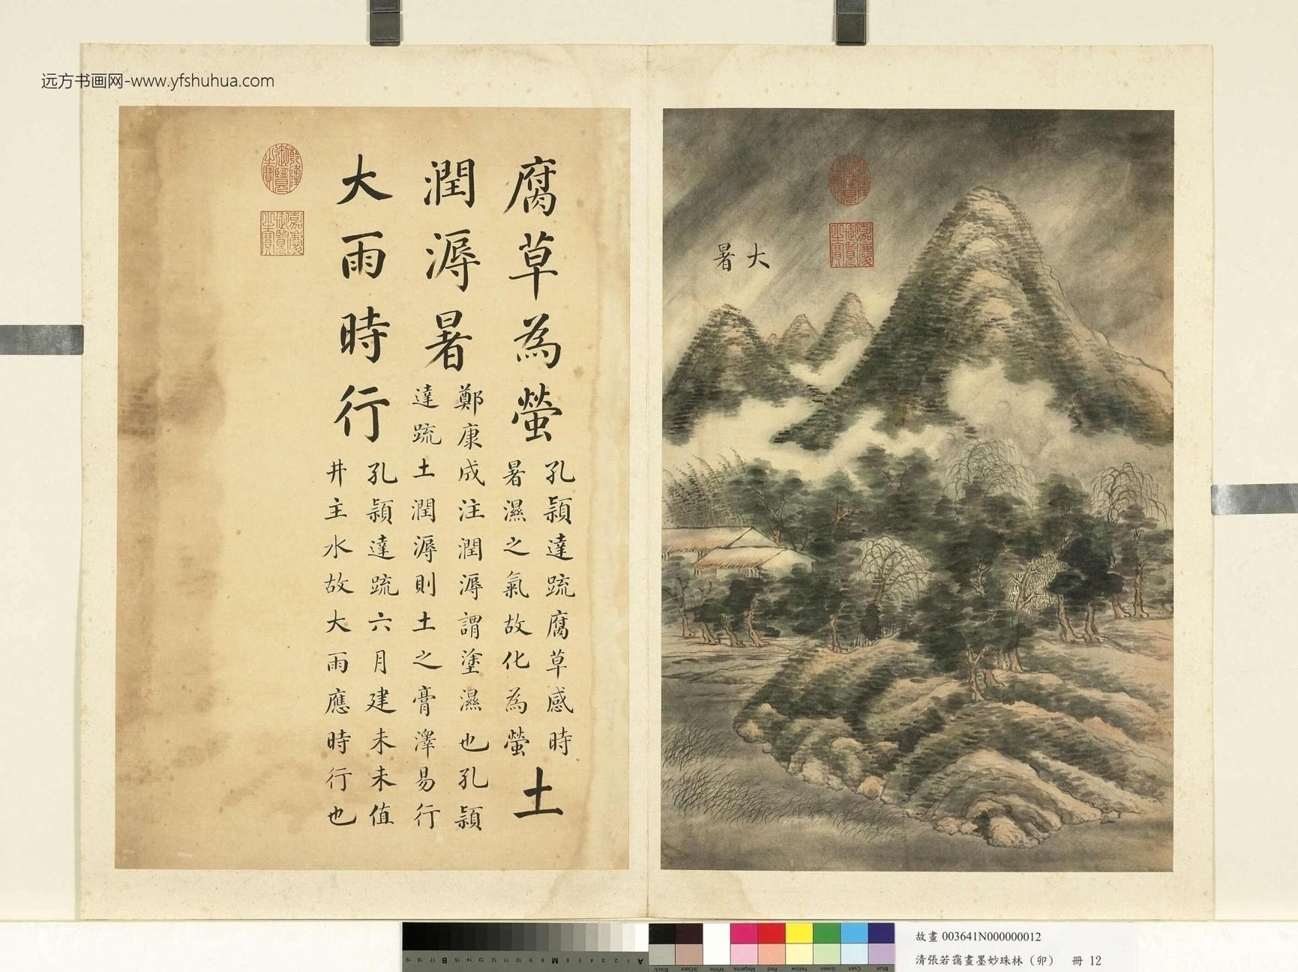 远方书画网-www.yfshuhua.com
腐草為螢
孔穎達疏腐草感時
暑濕之氣故化為螢
土
潤溽暑
鄭康成注潤溽謂塗濕也孔穎
達疏土潤溽則土之膏澤易行
大雨時行
孔穎達疏六月建未未值
井主水故大雨應時行也
乾隆御覽之寶
嘉慶御覽之寶
大暑
嘉慶御覽之寶
故畫 003641N000000012
清張若靄畫墨妙珠林（卯） 冊 12